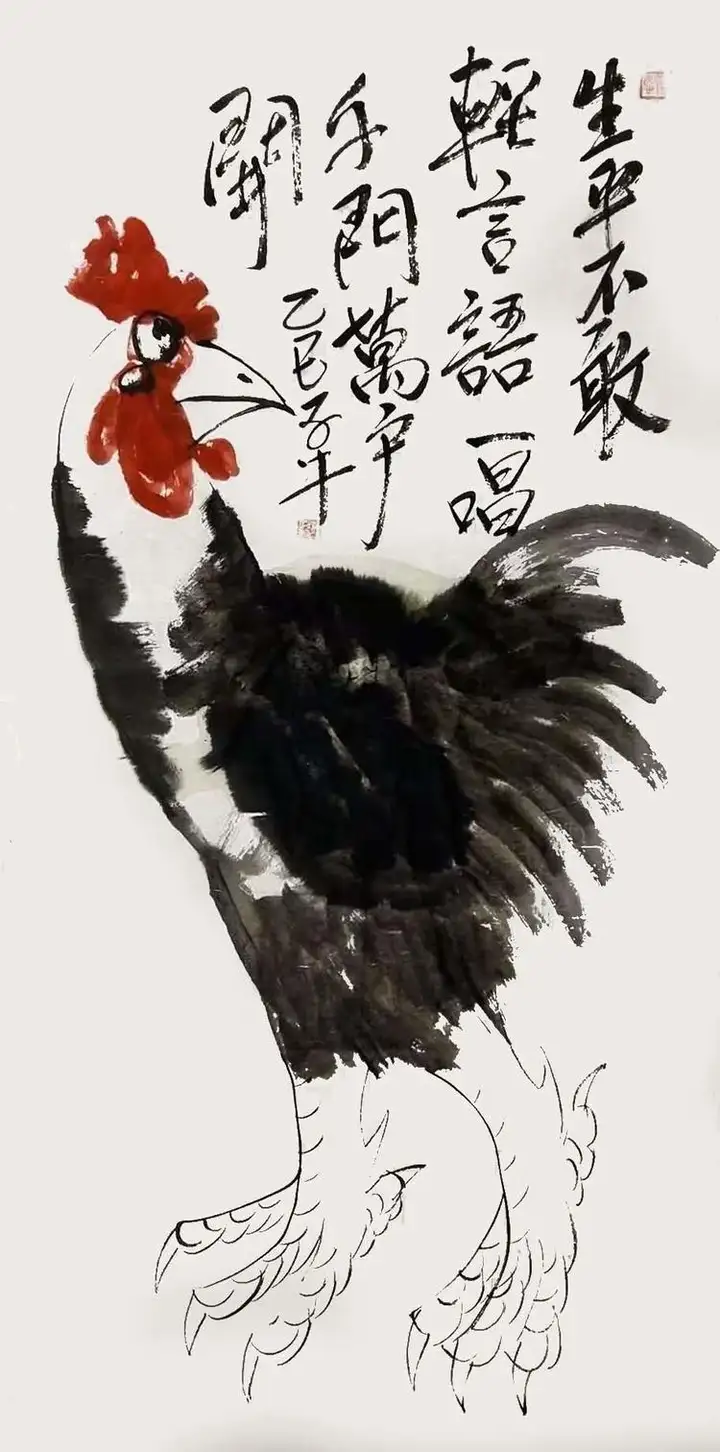 生平不敢
輕言語一唱
千門萬户
開
乙巳子牛